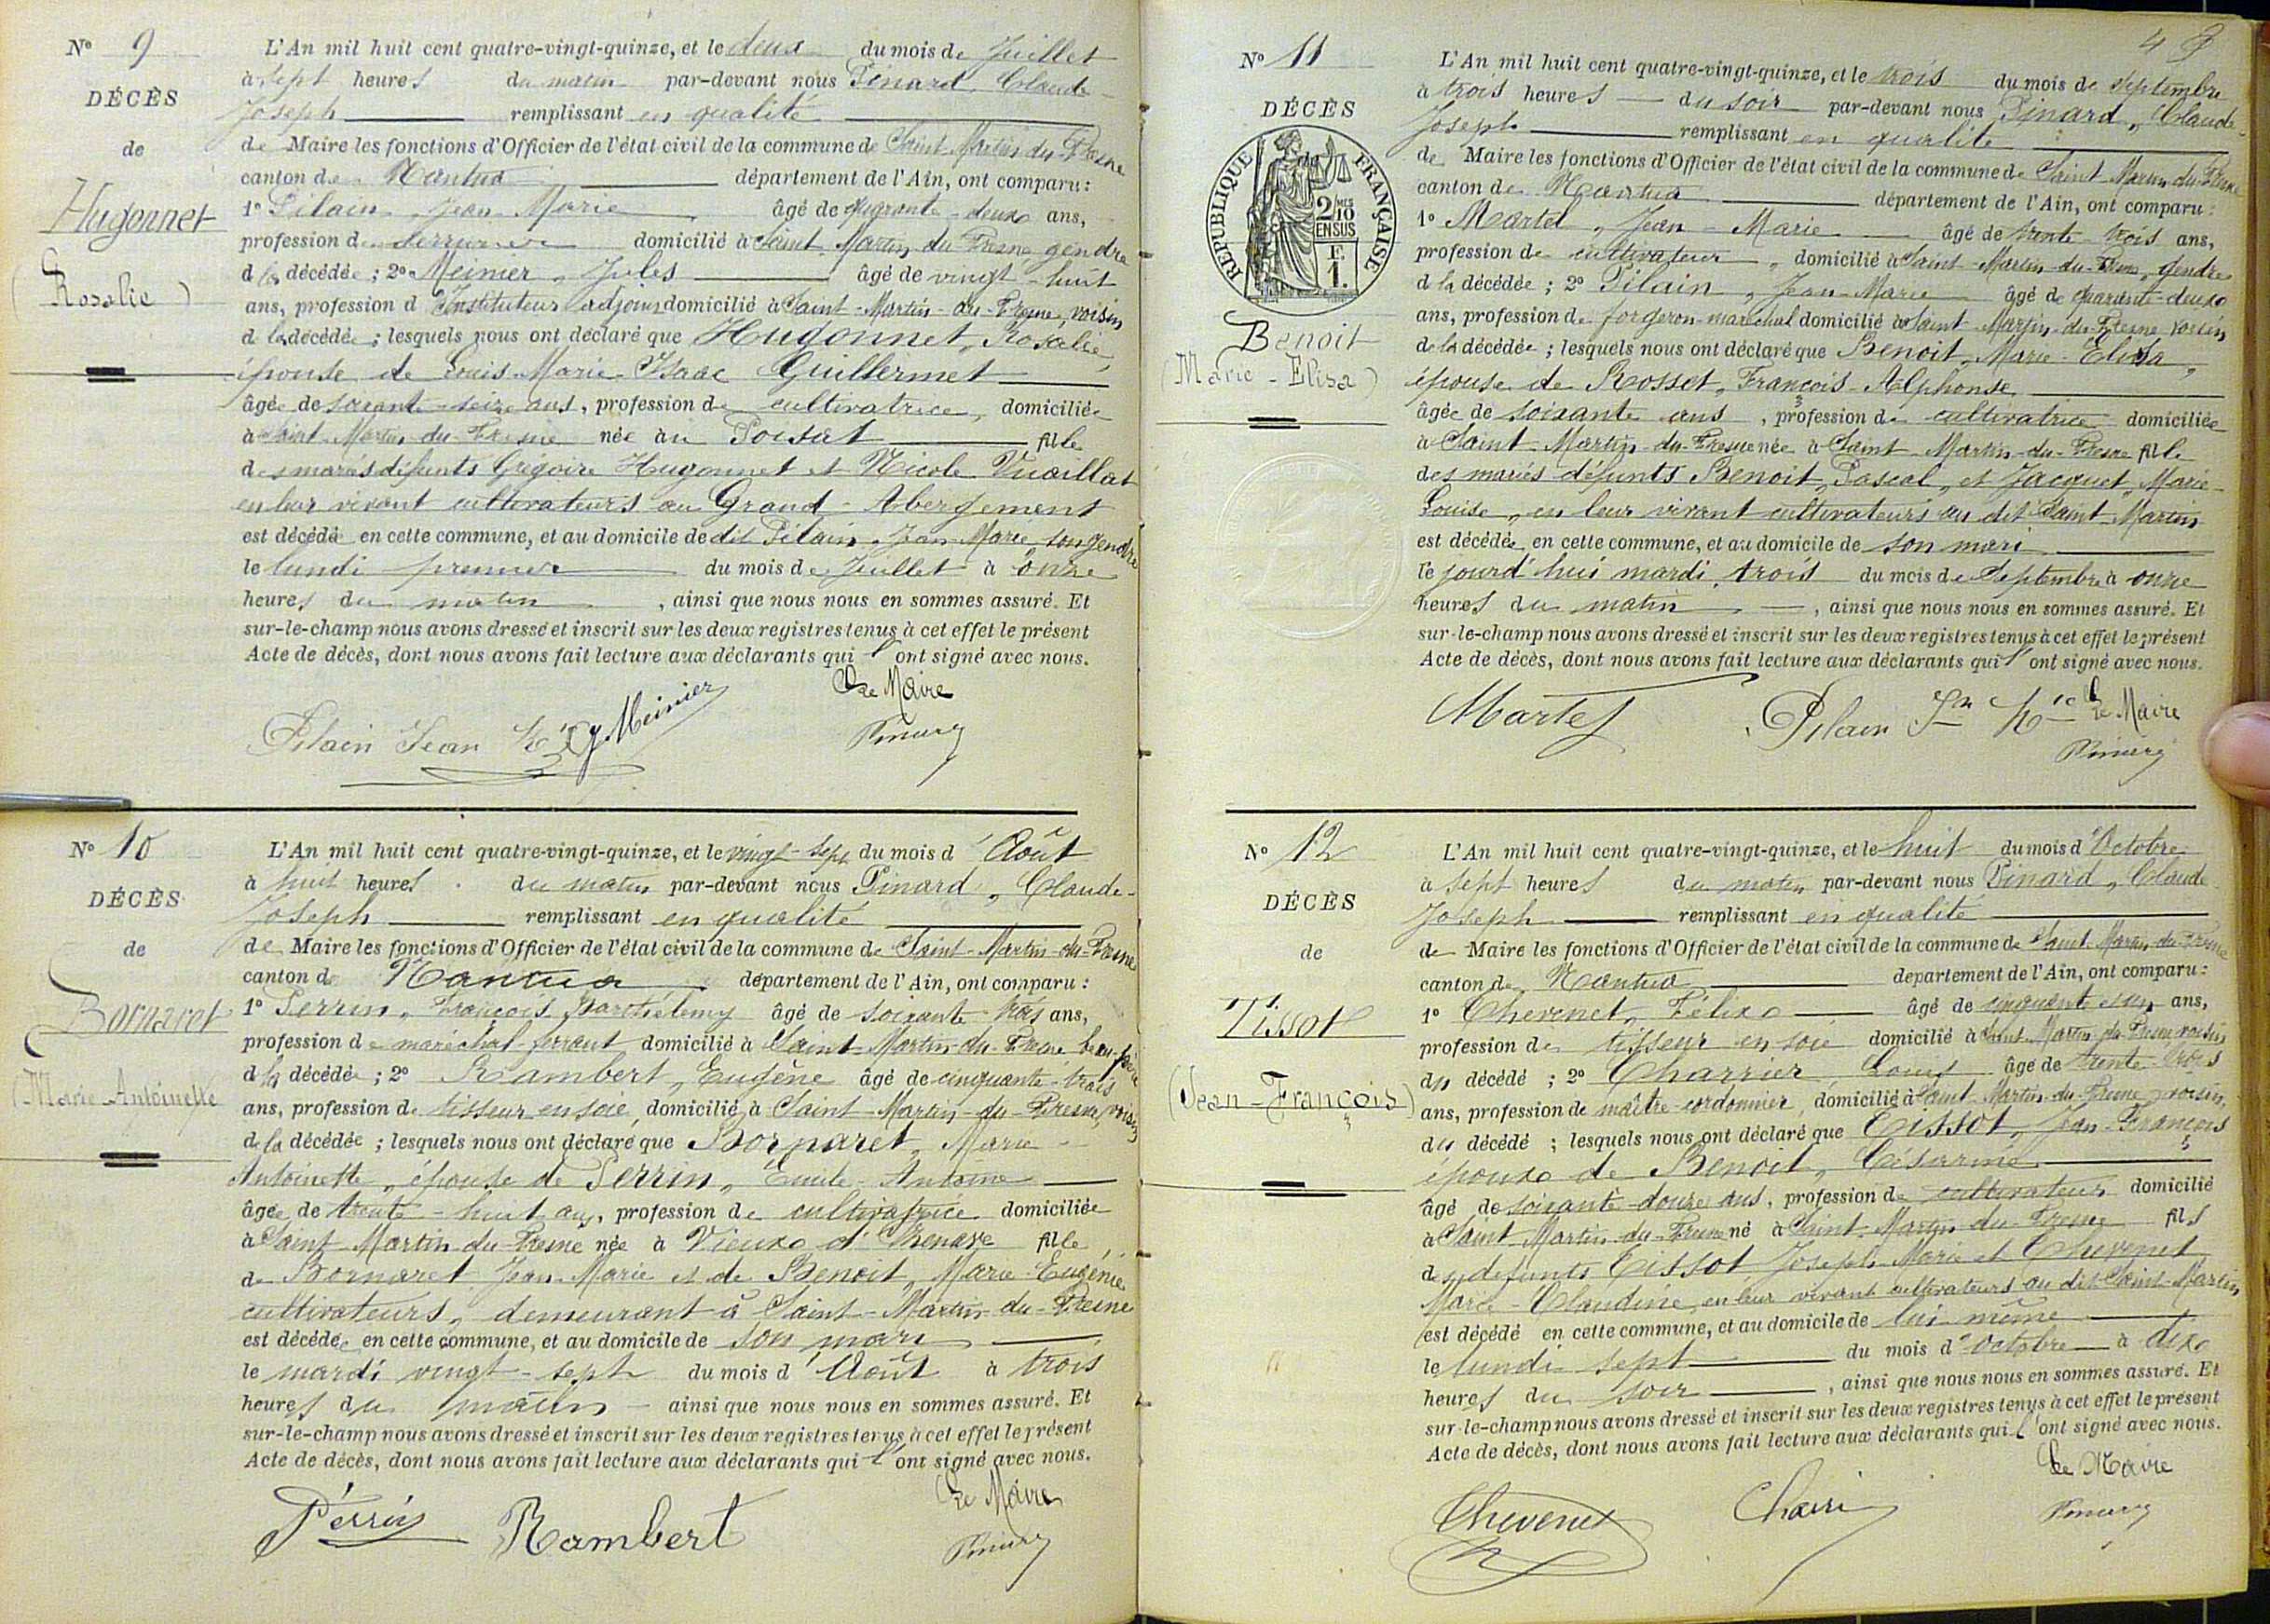 N° 9
DÉCÈS
de
Hugonnet
(Rosalie)
L'An mil huit cent quatre-vingt-quinze, et le deux du mois de Juillet
à sept heures du matin par-devant nous Pinard, Claude
Joseph remplissant en qualité
de Maire les fonctions d'Officier de l'état civil de la commune de Saint-Martin-du-Fresne
canton de Nantua département de l'Ain, ont comparu :
1° Pilain, Jean Marie âgé de quarante-deux ans,
profession de serrurier domicilié à Saint-Martin du Fresne gendre
d la décédée ; 2° Meinier, Jules âgé de vingt-huit
ans, profession d'Instituteur adjoint domicilié à Saint-Martin-du-Fresne, voisin
d la décédée ; lesquels nous ont déclaré que Hugonnet, Rosalie,
épouse de Louis-Marie-Isaac Guillermet
âgée de soixante-seize ans, profession de cultivatrice, domiciliée
à Saint-Martin-du-Fresne née au Poisat fille
des mariés défunts Grégoire Hugonnet et Nicole Vuaillat
en leur vivant cultivateurs au Grand-Abergement
est décédée en cette commune, et au domicile de dit Pilain, Jean Marie, son gendre
le lundi premier du mois de Juillet à onze
heures du matin, ainsi que nous nous en sommes assuré. Et
sur-le-champ nous avons dressé et inscrit sur les deux registres tenus à cet effet le présent
Acte de décès, dont nous avons fait lecture aux déclarants qui l'ont signé avec nous.
Le Maire
Pilain Jean Mie J Meinier Pinard
N° 10
DÉCÈS
de
Bornaret
(Marie Antoinette
L'An mil huit cent quatre-vingt-quinze, et le vingt-sept du mois d'Août
à huit heures du matin par-devant nous Pinard, Claude-
Joseph remplissant en qualité
de Maire les fonctions d'Officier de l'état civil de la commune de Saint-Martin-du-Fresne
canton de Nantua département de l'Ain, ont comparu :
1° Perrin, François Barthélemy âgé de soixante-trois ans,
profession de maréchal-ferrant domicilié à Saint-Martin-du-Fresne beau-père
d la décédée ; 2° Rambert, Eugène âgé de cinquante-trois
ans, profession de tisseur en soie, domicilié à Saint-Martin-du-Fresne, voisin
de la décédée ; lesquels nous ont déclaré que Bornaret, Marie
Antoinette, épouse de Perrin, Emile-Antoine
âgée de trente-huit ans, profession de cultivatrice domiciliée
à Saint-Martin-du-Fresne née à Vieux d'Izenave fille
de Bornaret Jean-Marie et de Benoit, Marie-Eugénie
cultivateurs, demeurant à Saint-Martin-du-Fresne
est décédée en cette commune, et au domicile de son mari
le mardi vingt-sept du mois d'Août à trois
heures du matin ainsi que nous nous en sommes assuré. Et
sur-le-champ nous avons dressé et inscrit sur les deux registres tenus à cet effet le présent
Acte de décès, dont nous avons fait lecture aux déclarants qui l'ont signé avec nous.
Le Maire
Perrin Rambert Pinard
48
N° 11
DÉCÈS
RÉPUBLIQUE FRANÇAISE
2 MES
10
EN SUS
F.
1.
Benoit
(Marie-Elisa)
L'An mil huit cent quatre-vingt-quinze, et le trois du mois de septembre
à trois heures du soir par-devant nous Pinard, Claude-
Joseph remplissant en qualité
de Maire les fonctions d'Officier de l'état civil de la commune de Saint-Martin-du-Fresne
canton de Nantua département de l'Ain, ont comparu :
1° Martel, Jean-Marie âgé de trente-trois ans,
profession de cultivateur, domicilié à Saint-Martin-du-Fresne, gendre
d la décédée ; 2° Pilain, Jean-Marie âgé de quarante-deux
ans, profession de forgeron-maréchal domicilié à Saint-Martin-du-Fresne voisin
de la décédée ; lesquels nous ont déclaré que Benoit, Marie-Elisa,
épouse de Rosset, François-Alphonse
âgée de soixante ans, profession de cultivatrice domiciliée
à Saint-Martin-du-Fresne née à Saint-Martin-du-Fresne fille
des mariés défunts Benoit, Pascal, et Jacquet, Marie-
Louise, en leur vivant cultivateurs au dit Saint Martin
est décédée en cette commune, et au domicile de son mari
le jourd'hui mardi trois du mois de Septembre à onze
heures du matin, ainsi que nous nous en sommes assuré. Et
sur-le-champ nous avons dressé et inscrit sur les deux registres tenus à cet effet le présent
Acte de décès, dont nous avons fait lecture aux déclarants qui l'ont signé avec nous.
Martel Pilain Jn Mie Le Maire
Pinard
N° 12
DÉCÈS
de
Tissot
(Jean-François)
L'An mil huit cent quatre-vingt-quinze, et le huit du mois d'Octobre
à sept heures du matin par-devant nous Pinard, Claude
Joseph remplissant en qualité
de Maire les fonctions d'Officier de l'état civil de la commune de Saint-Martin-du-Fresne
canton de Nantua département de l'Ain, ont comparu :
1° Chevenet, Félix âgé de cinquante ans,
profession de tisseur en soie domicilié à Saint-Martin-du-Fresne voisin
du décédé ; 2° Charrier Louis âgé de trente-trois
ans, profession de maître-cordonnier, domicilié à Saint-Martin-du-Fresne, voisin,
du décédé ; lesquels nous ont déclaré que Tissot, Jean-François
époux de Benoit, Césarine
âgé de soixante-douze ans, profession de cultivateur domicilié
à Saint-Martin-du-Fresne né à Saint-Martin-du-Fresne fils
des défunts Tissot Joseph-Marie et Chevenet
Marie-Claudine, en leur vivant cultivateurs au dit Saint-Martin
est décédé en cette commune, et au domicile de lui même
le lundi sept du mois d'octobre à dix
heures du soir, ainsi que nous nous en sommes assuré. Et
sur-le-champ nous avons dressé et inscrit sur les deux registres tenus à cet effet le présent
Acte de décès, dont nous avons fait lecture aux déclarants qui l'ont signé avec nous.
Le Maire
Chevenet Pinard